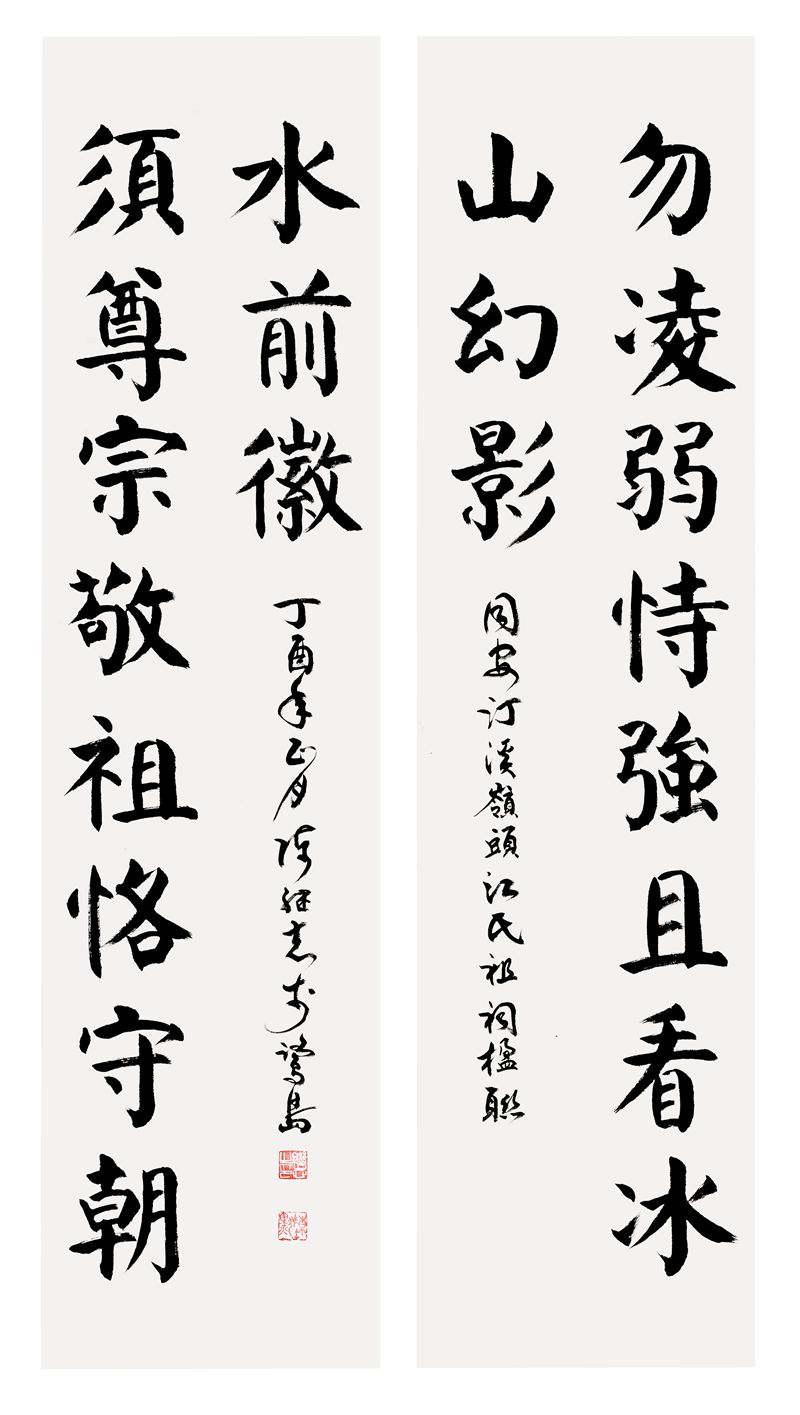 勿凌弱恃強且看冰
山幻影
同安汀溪嶺頭江氏祖祠楹聯
須尊宗敬祖恪守朝
水前徽
丁酉年正月陳繼志書於鷺島